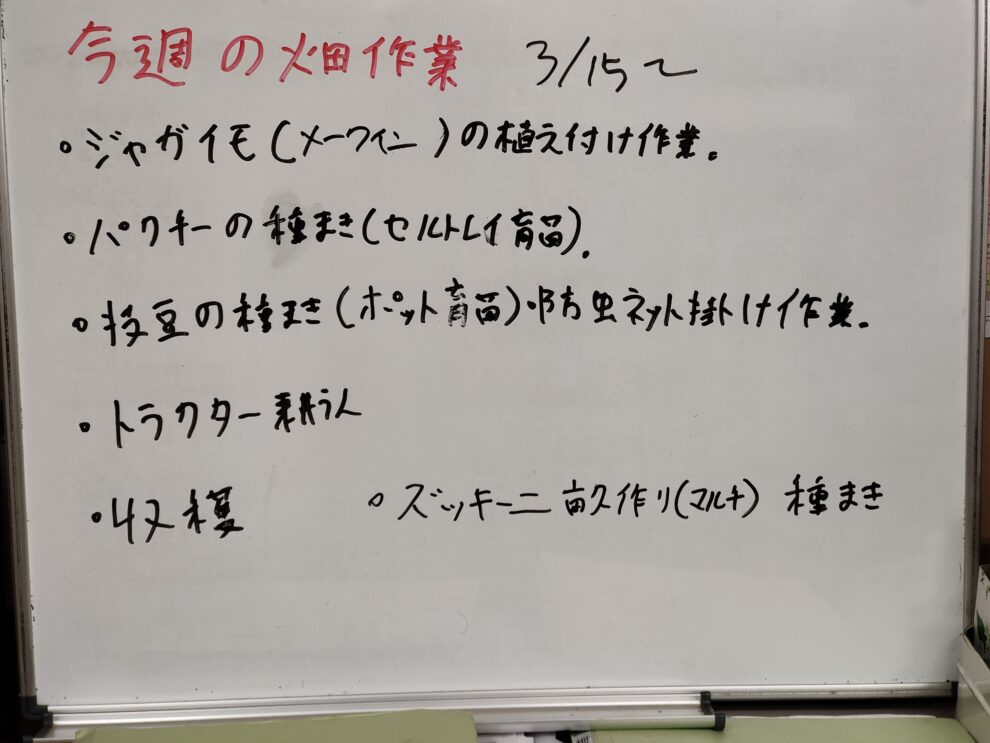 今週の畑作業 3/15~
・ジャガイモ(メークイン)の植え付け作業。
・パクチーの種まき(セルトレイ育苗).
・枝豆の種まき(ポット育苗)・防虫ネット掛け作業。
・トラクター耕うん
・収穫 ・ズッキーニ畝作り(マルチ) 種まき